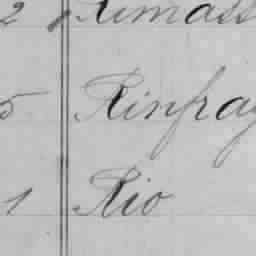 2 Rimass
5 Rinfray
1 Rio